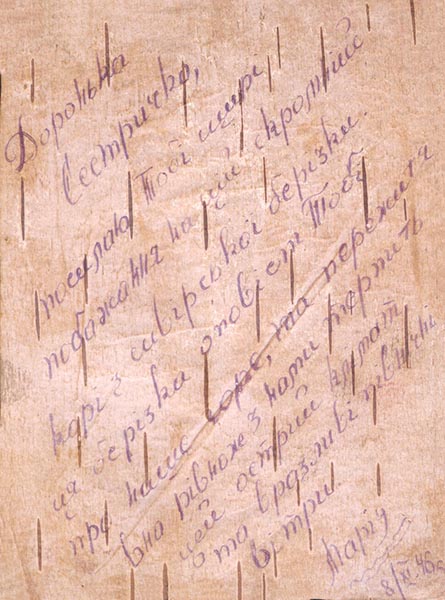 Доронька
Сестричко,
посилаю Тобі щирі
побажання на цій скромній
карі з сибірської берізки.
Ця берізка оповість Тобі
про наше горе, та пережиття
вна рівнож з нами терпить
цей острий климат
та вразливі північні
вітри.
Марія
8/XI.46р